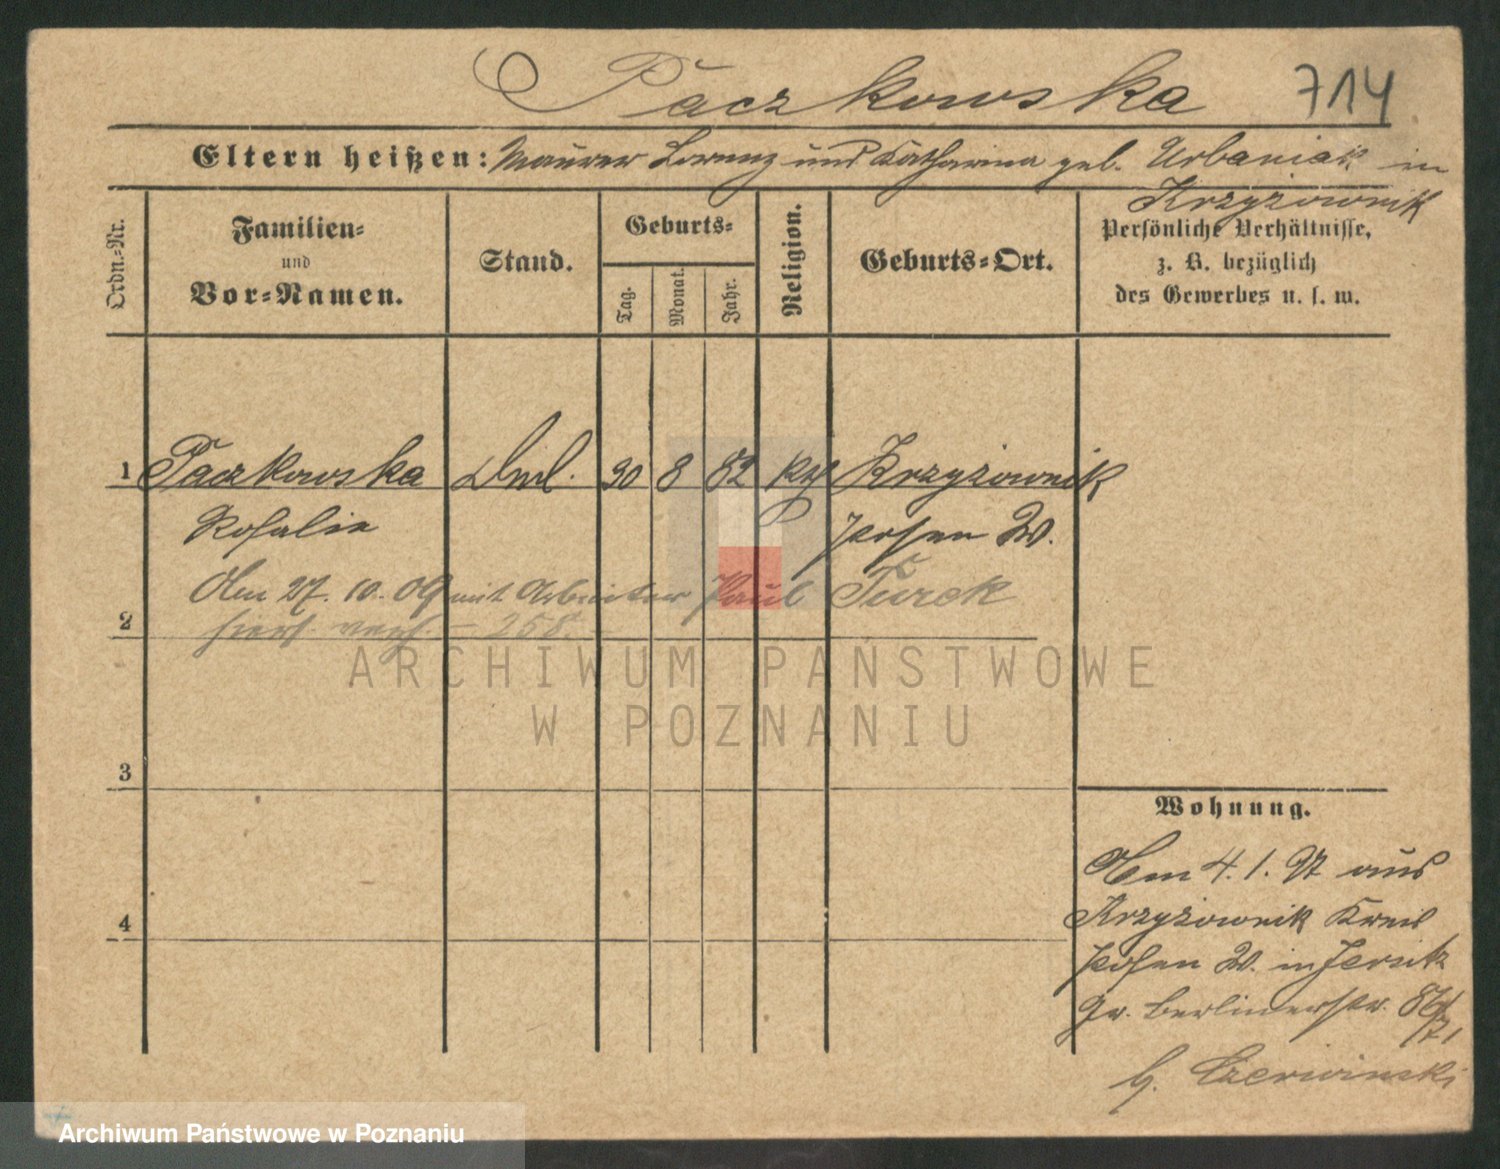 Paczkowska 714
Eltern heißen: Maurer Lorenz und Katharina geb. Urbaniak in
Krzyżownik
Ordn.-Nr.
Familien-
und
Vor-Namen.
Stand.
Geburts-
Tag.
Monat.
Jahr.
Religion.
Geburts-Ort.
Persönliche Verhältnisse,
z. B. bezüglich
des Gewerbes u. s. w.
1 Paczkowska 30 8 82 Krzyżownik
Rosalie Posen W.
Am 27. 10. 09 mit Arbeiter Paul Turek
2 hiers. verh. – 258.
3
4
Wohnung.
Am 4. 1. aus
Krzyżownik Kreis
Posen W. in Jersitz
Gr. Berlinerstr. 86/
71
b. Czerwinski
ARCHIWUM PAŃSTWOWE
W POZNANIU
Archiwum Państwowe w Poznaniu